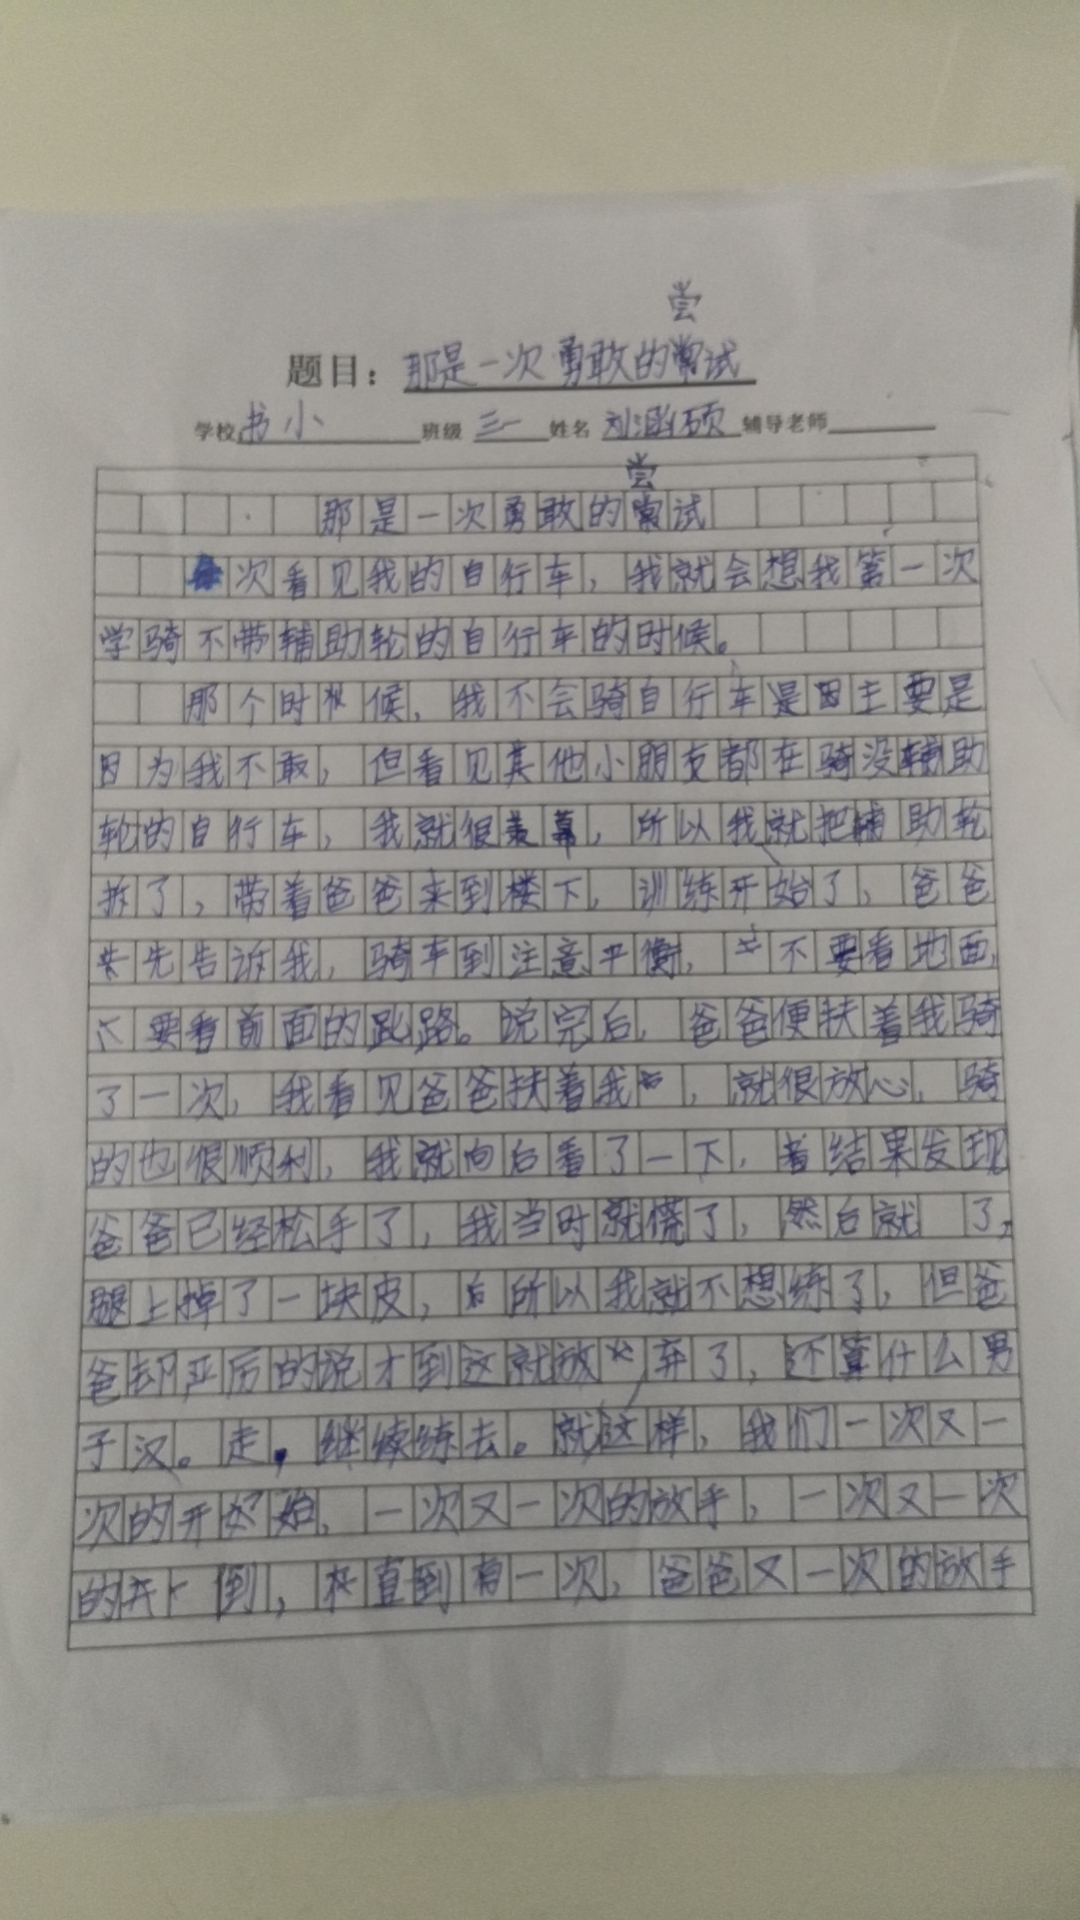 尝
题目：那是一次勇敢的尝试
学校书小 班级三一 姓名刘涵硕 辅导老师
尝
那是一次勇敢的尝试
每次看见我的自行车，我就会想我第一次
学骑不带辅助轮的自行车的时候。
那个时候，我不会骑自行车是因主要是
因为我不敢，但看见其他小朋友都在骑没辅助
轮的自行车，我就很羡慕，所以我就把辅助轮
拆了，带着爸爸来到楼下，训练开始了，爸爸
先告诉我，骑车到注意平衡，不要看地面，
要看前面的路。说完后，爸爸便扶着我骑
了一次，我看见爸爸扶着我，就很放心，骑
的也很顺利，我就向后看了一下，结果发现
爸爸已经松手了，我当时就慌了，然后就 了，
腿上掉了一块皮，所以我就不想练了，但爸
爸却严厉的说才到这就放弃了，还算什么男
子汉。走，继续练去。就这样，我们一次又一
次的开始，一次又一次的放手，一次又一次
的 倒，直到有一次，爸爸又一次的放手